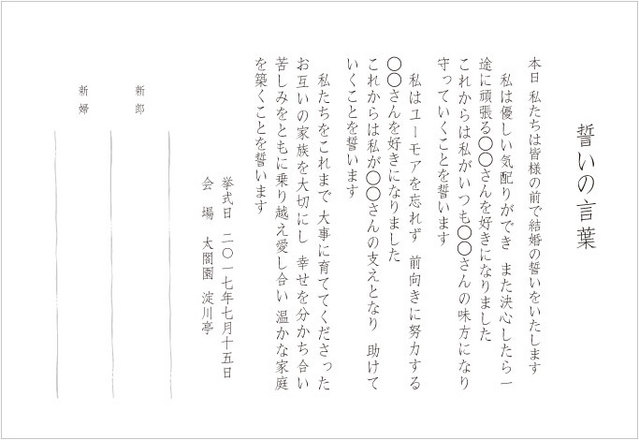 誓いの言葉
本日 私たちは皆様の前で結婚の誓いをいたします
私は優しい気配りができ また決心したら一
途に頑張る〇〇さんを好きになりました
これからは私がいつも〇〇さんの味方になり
守っていくことを誓います
私はユーモアを忘れず 前向きに努力する
〇〇さんを好きになりました
これからは私が〇〇さんの支えとなり 助けて
いくことを誓います
私たちをこれまで 大事に育ててくださった
お互いの家族を大切にし 幸せを分かち合い
苦しみをともに乗り越え愛し合い 温かな家庭
を築くことを誓います
挙式日 二〇一七年七月十五日
会 場 太閤園 淀川亭
新郎
新婦